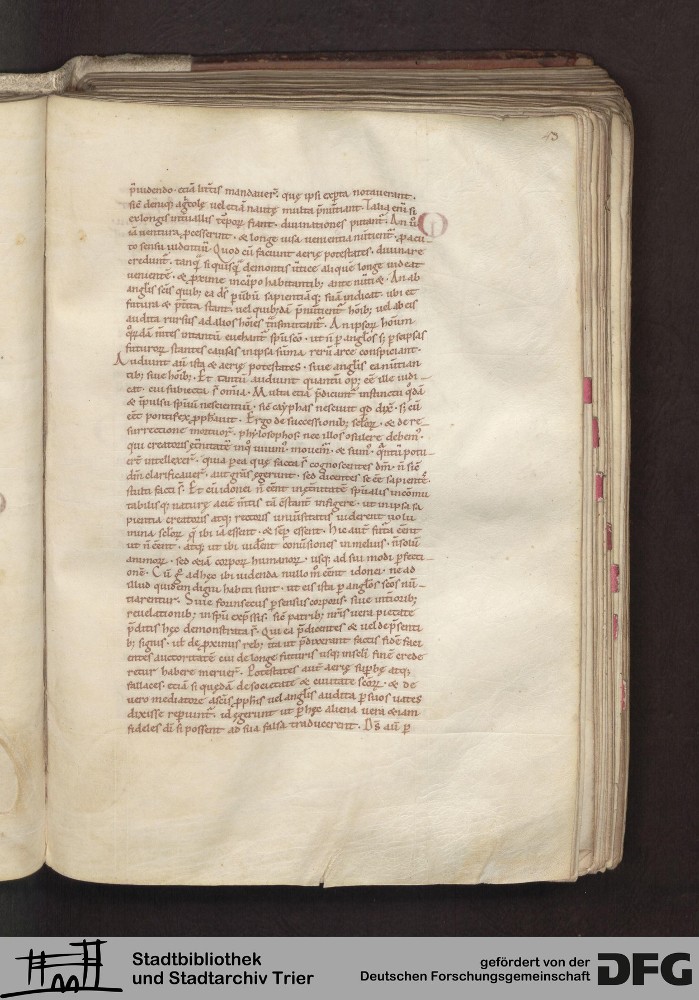 43
p̄uidendo · etiā litt̄is mandauer̄ . quę ipsi exp̄ta notauerant .
sic̄ deniq; agͥcolę uel etiam nautę multa p̄nūtiant . Talia eni᷒ si
ex longis int̄uallis tēpor̄ fiant . diuinationes putant̄ . An ū
ia uentura p̄cesserint . & longe uisa uenientia nūtient̄ . p acu-
to sensu uidentiū . Quod cū faciunt aerię potestates . diuinare
credunt̄ . tanq̄ si quisq̄ de montis u̅tice aliquē longe uideat
uenientē . & p̄xime in cāpo habitantib; ante nūti& . An ab
anglis̄ scīs quib; ea dſ p ūbū sapientiāq; suā indicat . ubi et
futura & p̄t̄ita stant . uel quib;dā p̄nūtient̄ hoib; uel ab eis
audita rursus ad alios hoīes t̄nsmittant̄ . An ipsor̄ hoīum
q̄r̄dā m̄tes intantū euehant̄ sp̄u scō . ut n̄ p anglos s; p se ipsas
futuror̄ stantes causas in ipsa sūma rerū arce conspiciant .
Audiunt aū ista & aerię potestates . siue anglis̄ ea nūtian-
tib; siue hoib; . Et tantū audiunt quantū op; eē̄ ille iudi-
cat . cui subiecta s̄ omīa . Multa etiā p̄dicunt̄ instinctu q̄dā
& īpulsu spiritū nescientiū . sic̄ cayphas nesciuit qd dix̄ . s; cū
ecc̄ pontifex p̄ph&auit . Ergo de successionib; sc̄lor̄ . & de re-
surrectione mortuor̄ . phylosophos nec illos c̄sulere debem᷒ .
qui creatoris et̄nitatē in q̄ uiuim᷒ . mouem̄ . & sum᷒ . q̄ntū potu-
ere intellexer̄ . quia p ea quę facta s̄ cognoscentes dm̄ . n̄ sic̄
dm̄ clarificauer̄ . aut grās egerunt . sed dicentes se eē̄ sapientes̄
stulti facti s̄ . Et cū idonei n̄ eēnt in et̄nitatē spiritalis incōmu-
tabilisq; naturę aciē m̄tis tā c̄stant̄ infigere . ut in ipsa sa-
pientia creatoris atq; rectoris uniūsitatis uiderent uolu-
mina sc̄lor̄ q̄ ibi iā essent . & semp̄ essent . hic aut̄ futura eēnt
ut n̄ eēnt . atq; ut ibi uiderent conūsiones in melius . n̄ solū
animor̄ . sed &iā corpor̄ humanor̄ . usq; ad sui modi p̄fecti-
onē . Cū g̊ ad hęc ibi uidenda nullo m̊ eēnt idonei . ne ad
illud quidem digni habiti sunt . ut eis ista p anglos scōs nū-
tiarentur . Siue forinsecus p sensus corporis . siue int̄iorib;
reuelationib; in sp̄u exp̄ssis . sic̄ patrib; nr̄is uera pietate
p̄ditis hęc demonstrata s̄ . Qui ea p̄dicentes & uel de p̄senti-
b; signis . ul̄ de p̄ximis reb; ita ut p̄dixerint factis fidē faci
entes auctoritatē cui de longe futuris usq; in scl̄i finē crede
retur habere meruer̄ . Potestates aut̄ aerię sup̄bę atq;
fallaces . etiā si quędā de societate & ciuitate scōr̄ . & de
uero mediatore a scīs p̄ph&is uel anglis̄ audita p suos uates
dixisse rep̄iunt̄ . id egerunt ut p hęc aliena uera &iam
fideles dī si possent ad sua falsa traducerent . Dſ aū p
Stadtbibliothek
und Stadtarchiv Trier
gefördert von der
Deutschen Forschungsgemeinschaft
DFG